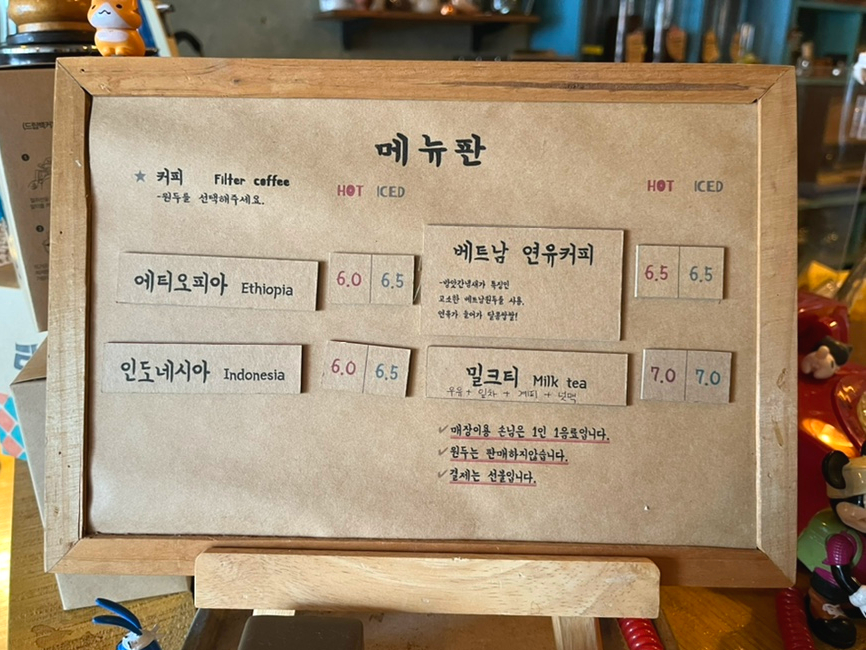 메뉴판
★ 커피 Filter coffee
-원두를 선택해주세요.
HOT ICED
에티오피아 Ethiopia 6.0 6.5
인도네시아 Indonesia 6.0 6.5
HOT ICED
베트남 연유커피 6.5 6.5
-방앗간냄새가 특징인
고소한 베트남원두를 사용,
연유가 들어가 달콤쌉쌀!
밀크티 Milk tea 7.0 7.0
우유 + 잎차 + 계피 + 넛맥
✓매장이용 손님은 1인 1음료입니다.
✓원두는 판매하지않습니다.
✓결제는 선불입니다.